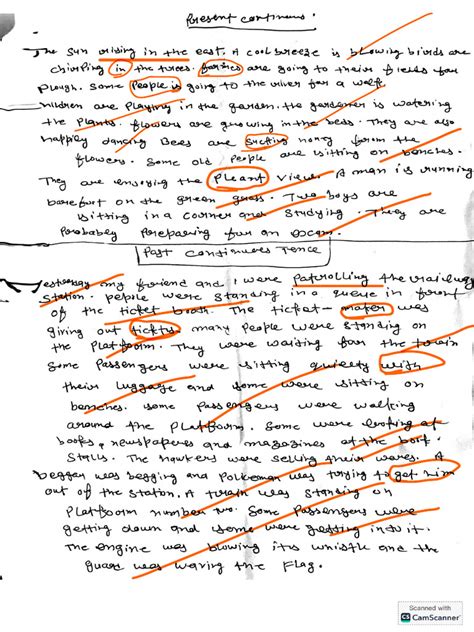 Present continuous.
The sun rising in the east. A cool breeze is blowing birds are
chirping in the trees. farmers are going to their fields for
plough. Some People is going to the river for a walk.
hildren are playing in the garden. the gardener is watering
the Plants. flowers are growing in the beds. They are also
happily dancing Bees are sucking honey from the
flowers. Some old People are sitting on benches.
They are enjoying the Pleant view. A man is running
barefoot on the green grass. Two boys are
sitting in a corner and studying. They are
Probably Preparing for an Exam.
Past continuous Tence
Yesterday my friend and I were Patrolling the railway
station. people were standing in a queue in front
of the ticket booth. The ticket- mater was
giving out tickts. many People were standing on
the Platfoom. They were waiting for the train
Some Passengers were sitting quietly with
their luggage and some were sitting on
benches. some Passengers were walking
around the Platform. Some were looking at
books, newspapers and magazines at the book
Stalls. The hawkers were selling their wares. A
beggar was begging and Policeman was trying to get him
out of the station. A train was standing on
Platfoom number two. Some Passengers were
getting down and some were getting into it.
The engine was blowing its whistle and the
guard was waving the Flag.
Scanned with
CS CamScanner